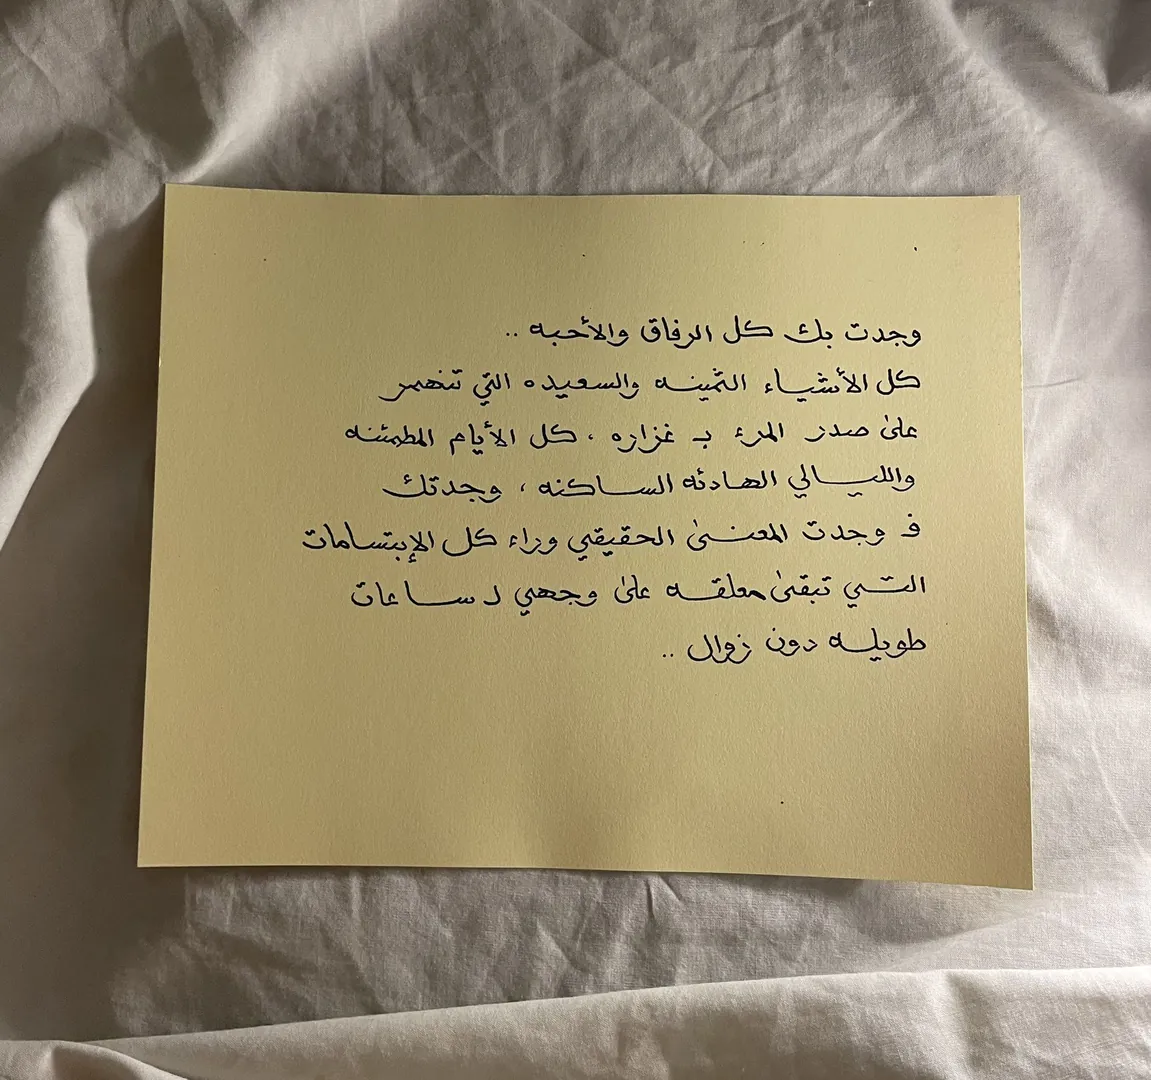 وجدت بك كل الرفاق والأحبه ..
كل الأشياء الثمينه والسعيده التي تنهمر
على صدر المرء بـ غزاره ، كل الأيام المطمئنه
والليالي الهادئه الساكنه ، وجدتك
فـ وجدت المعنى الحقيقي وراء كل الإبتسامات
التي تبقى معلقه على وجهي لـ ساعات
طويله دون زوال ..